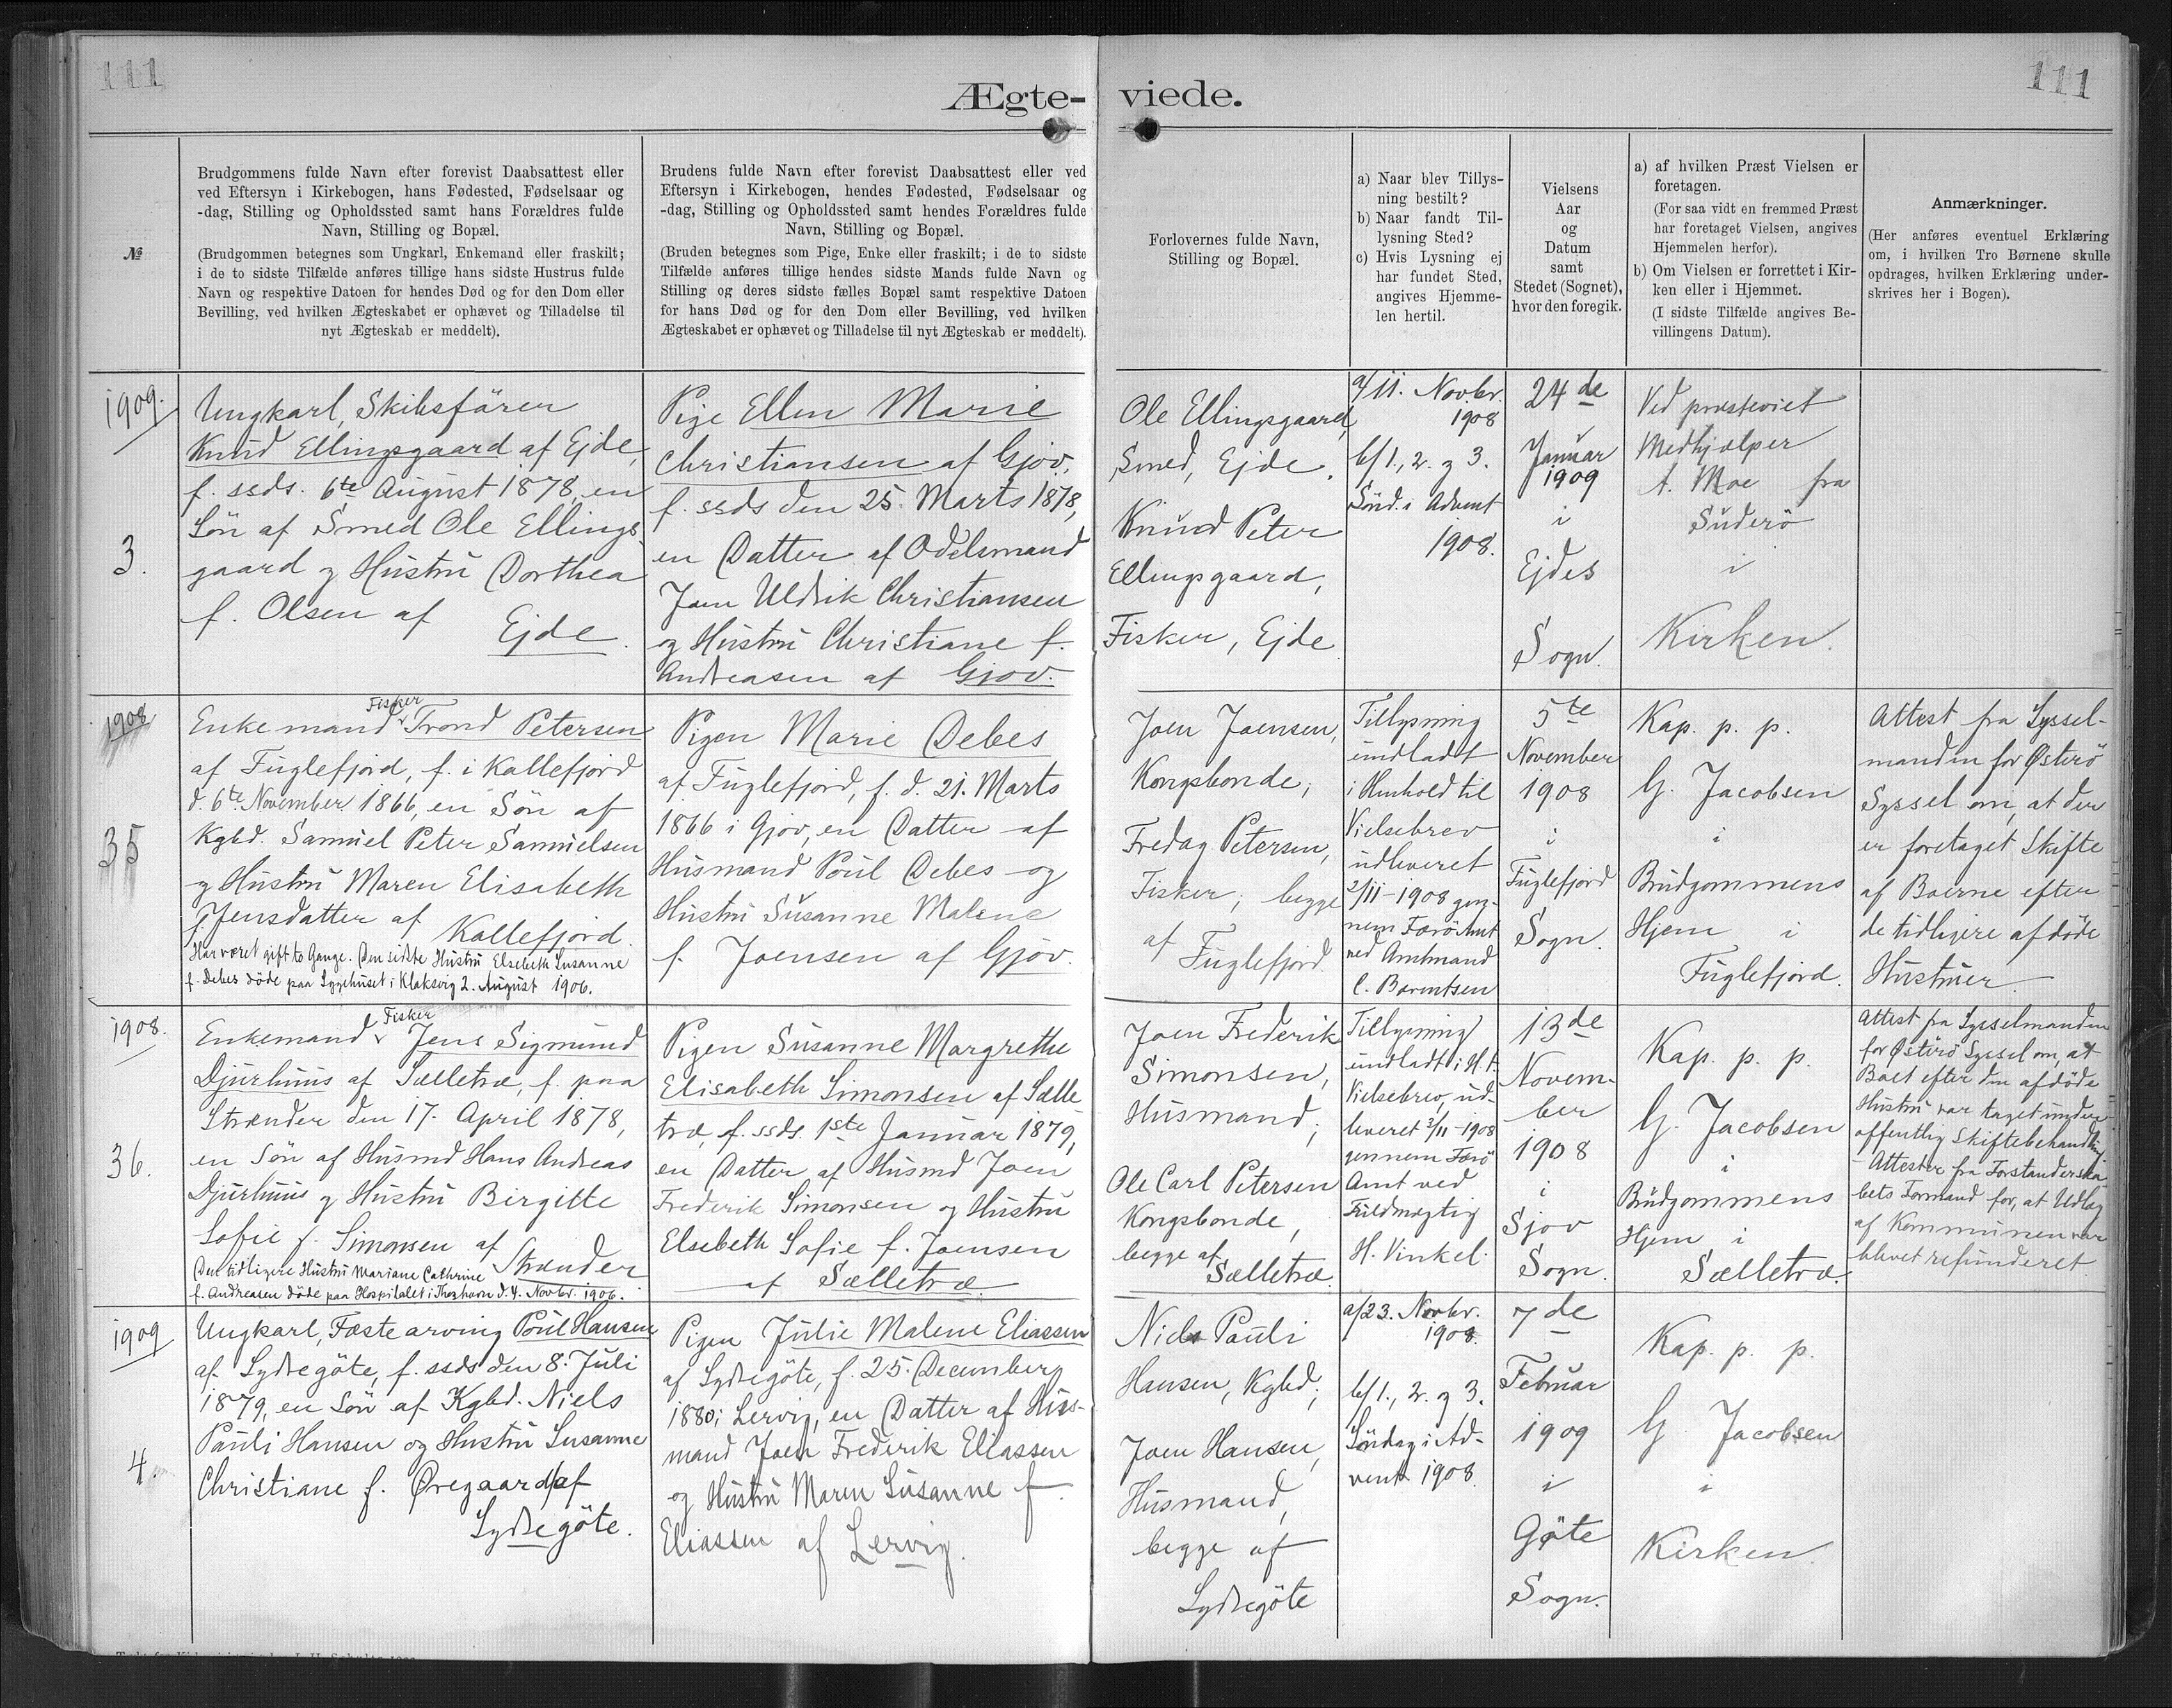 111
Ægte-
viede.
111
№
Brudgommens fulde Navn efter forevist Daabsattest eller
ved Eftersyn i Kirkebogen, hans Fødested, Fødselsaar og
-dag, Stilling og Opholdssted samt hans Forældres fulde
Navn, Stilling og Bopæl.
(Brudgommen betegnes som Ungkarl, Enkemand eller fraskilt;
i de to sidste Tilfælde anføres tillige hans sidste Hustrus fulde
Navn og respektive Datoen for hendes Død og for den Dom eller
Bevilling, ved hvilken Ægteskabet er ophævet og Tilladelse til
nyt Ægteskab er meddelt).
Brudens fulde Navn efter forevist Daabsattest eller ved
Eftersyn i Kirkebogen, hendes Fødested, Fødselsaar og
-dag, Stilling og Opholdssted samt hendes Forældres fulde
Navn, Stilling og Bopæl.
(Bruden betegnes som Pige, Enke eller fraskilt; i de to sidste
Tilfælde anføres tillige hendes sidste Mands fulde Navn og
Stilling og deres sidste fælles Bopæl samt respektive Datoen
for hans Død og for den Dom eller Bevilling, ved hvilken
Ægteskabet er ophævet og Tilladelse til nyt Ægteskab er meddelt).
Forlovernes fulde Navn,
Stilling og Bopæl.
a) Naar blev Tillys-
ning bestilt?
b) Naar fandt Til-
lysning Sted?
c) Hvis Lysning ej
har fundet Sted,
angives Hjemme-
len hertil.
Vielsens
Aar
og
Datum
samt
Stedet (Sognet),
hvor den foregik.
a) af hvilken Præst Vielsen er
foretagen.
(For saa vidt en fremmed Præst
har foretaget Vielsen, angives
Hjemmelen herfor).
b) Om Vielsen er forrettet i Kir-
ken eller i Hjemmet.
(I sidste Tilfælde angives Be-
villingens Datum).
Anmærkninger.
(Her anføres eventuel Erklæring
om, i hvilken Tro Børnene skulle
opdrages, hvilken Erklæring under-
skrives her i Bogen).
1909.
3.
Ungkarl, Skibsfører
Knud Ellingsgaard af Ejde,
f. ssds. 6te August 1878, en
Søn af Smed Ole Ellings
gaard og Hustru Dorthea
f. Olsen af
Ejde.
Pige Ellen Marie
Christiansen af Gjov,
f. ssds den 25. Marts 1878,
en Datter af Odelsmand
Joen Uldrik Christiansen
og Hustru Christiane f.
Andreasen af Gjov.
Ole Ellingsgaard,
Smed, Ejde,
Knud Peter
Ellingsgaard,
Fisker, Ejde
a/11. Novbr.
1908
b/1., 2. og 3.
Sönd. i Advent
1908.
24de
Januar
1909
i
Ejdes
Sogn.
Ved præsteviet
Medhjælper
A. Moe fra
Suderö
i
Kirken.
1908
35
Fisker
Enkemand Trond Petersen
af Fuglefjord, f. i Kollefjord
d. 6te November 1866, en Søn af
Kgbd. Samuel Peter Samuelsen
og Hustru Maren Elisabeth
f. Jensdatter af
Kollefjord.
Har været gift to Gange. Den sidste Hustru Elsebeth Susanne
f. Debes döde paa Sygehuset i Klaksvig 2. August 1906.
Pigen Marie Debes
af Fuglefjord, f. d. 21. Marts
1866 i Gjov, en Datter af
Husmand Poul Debes og
Hustru Susanne Malene
f. Joensen af Gjov.
Joen Joensen,
Kongsbonde,
Fredag Petersen,
Fisker, begge
af Fuglefjord.
Tillysning
undladt
i Henhold til
Vielsebrev
udleveret
2/11-1908 gen-
nem Færö Amt
ved Amtmand
C. Bærentsen
5te
November
1908
i
Fuglefjord
Sogn.
Kap. p. p.
G. Jacobsen
i
Brudgommens
Hjem i
Fuglefjord.
Attest fra Syssel-
manden for Österö
Syssel om, at der
er foretaget Skifte
af Boerne efter
de tidligere afdöde
Hustruer.
1908.
36.
Fisker
Enkemand Jens Sigmund
Djurhuus af Sælletræ, f. paa
Strænder den 17. April 1878,
en Søn af Husmd Hans Andreas
Djurhuus og Hustru Birgitte
Sofie f. Simonsen af
Strænder
Den tidligere Hustru Mariane Cathrine
f. Andreasen döde paa Hospitalet i Thorshavn d. 4. Novbr. 1906.
Pigen Susanne Margrethe
Elisabeth Simonsen af Sælle
træ, f. ssds. 1ste Januar 1879,
en Datter af Husmd Joen
Frederik Simonsen og Hustru
Elsebeth Sofie f. Joensen
af Sælletræ.
Joen Frederik
Simonsen,
Husmand,
Ole Carl Petersen
Kongsbonde,
begge af
Sælletræ.
Tillysning
undladt i H.t.
Vielsebrev, ud-
leveret 2/11-1908
gennem Færö
Amt ved
Fuldmægtig
H. Vinkel.
13de
Novem-
ber
1908
i
Sjov
Sogn.
Kap. p. p.
G. Jacobsen
i
Brudgommens
Hjem i
Sælletræ.
Attest fra Sysselmanden
for Österö Syssel om, at
Boet efter den afdöde
Hustru var taget under
offentlig Skiftebehandling
- Attester fra Forstanderska-
bets Formand for, at Udlæg
af Kommunen var
blevet refunderet.
1909
4.
Ungkarl, Fæstearving Poul Hansen
af Sydregöte, f. ssds den 8. Juli
1879, en Søn af Kgbd. Niels
Pauli Hansen og Hustru Susanne
Christiane f. Øregaard af
Sydregöte.
Pigen Julie Malene Eliassen
af Sydregöte, f. 25. December
1880 i Lervig, en Datter af Hus-
mand Joen Frederik Eliassen
og Hustru Maren Susanne f.
Eliassen af Lervig.
Niels Pauli
Hansen, Kgbd,
Joen Hansen,
Husmand,
begge af
Sydregöte
a/23. Novbr.
1908.
b/1., 2. og 3.
Söndag i Ad-
vent 1908.
7de
Februar
1909
i
Göte
Sogn.
Kap. p. p.
G. Jacobsen
i
Kirken.